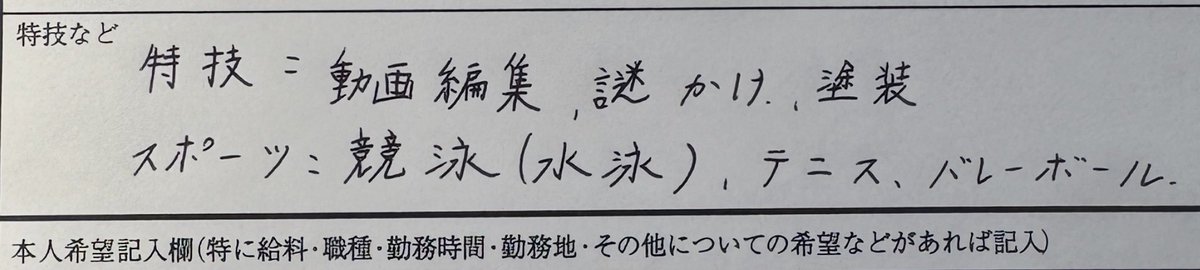 特技など
特技:動画編集,謎かけ.,塗装
スポーツ:競泳(水泳),テニス、バレーボール.
本人希望記入欄(特に給料・職種・勤務時間・勤務地・その他についての希望などがあれば記入)